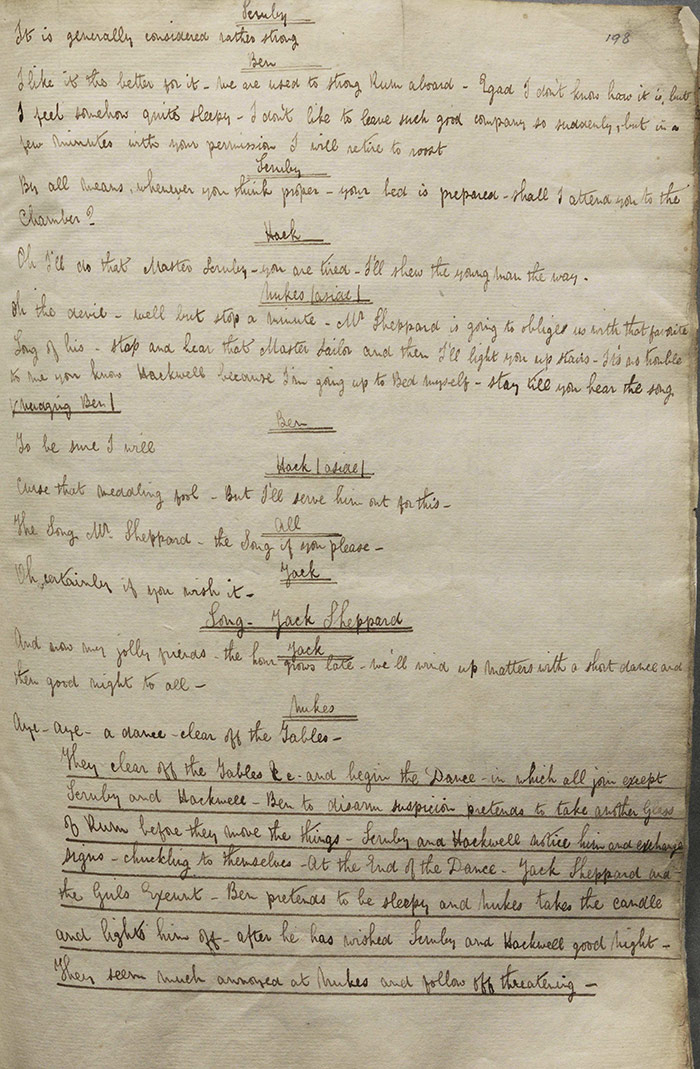 Scruby
198
It is generally considered rather strong
Ben
I like it the better for it - we are used to strong Rum aboard - Egad I don't know how it is, but
I feel somehow quite sleepy - I don't like to leave such good company so suddenly, but in a
few minutes with your permission I will retire to roost
Scruby
By all means, whenever you think proper - your bed is prepared - shall I attend you to the
Chamber?
Hack
Oh I'll do that Master Scruby - you are tired - I'll shew the young man the way -
Nukes |aside|
Oh the devil - well but stop a minute - Mr Sheppard is going to oblige us with that favorite
Song of his - stop and hear that Master Sailor and then I'll light you up stairs - It's no trouble
to me you know Hackwell because I'm going up to Bed myself - stay till you hear the song
Ben|
Ben
To be sure I will
Hack |aside|
Curse that meddling fool - But I'll serve him out for this -
All
The Song Mr Sheppard - the Song if you please -
Jack
Oh, certainly if you wish it -
Song - Jack Sheppard
Jack
And now my jolly friends - the hour grows late - we'll wind up matters with a short dance and
then good night to all -
Nukes
Aye - aye - a dance - clear off the Tables -
They clear off the Tables &c - and begin the Dance - in which all join except
Scruby and Hackwell - Ben to disarm suspicion pretends to take another Glass
of Rum before they move the things - Scruby and Hackwell notice him and exchange
signs - chuckling to themselves - At the End of the Dance - Jack Sheppard and
the Girls Exeunt - Ben pretends to be sleepy and Nukes takes the candle
and lights him off - after he has wished Scruby and Hackwell good night -
They seem much annoyed at Nukes and follow off threatening -